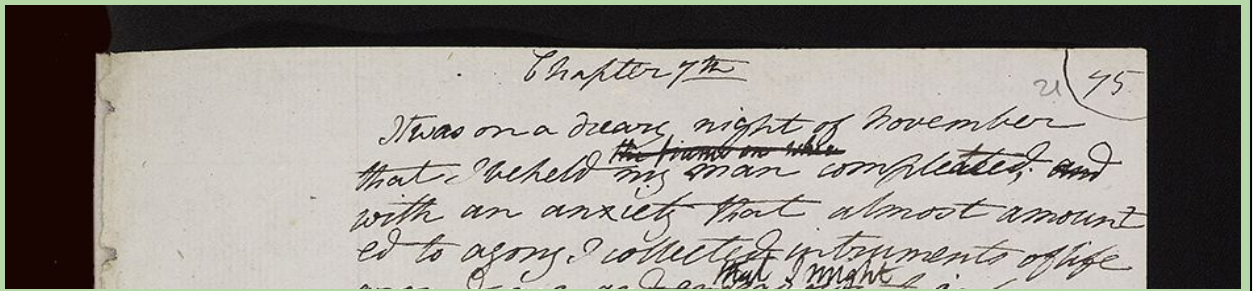 Chapter 7th
21 75
It was on a dreary night of November
that I beheld my man compleated, and
with an anxiety that almost amount
ed to agony I collected instruments of life
that I might